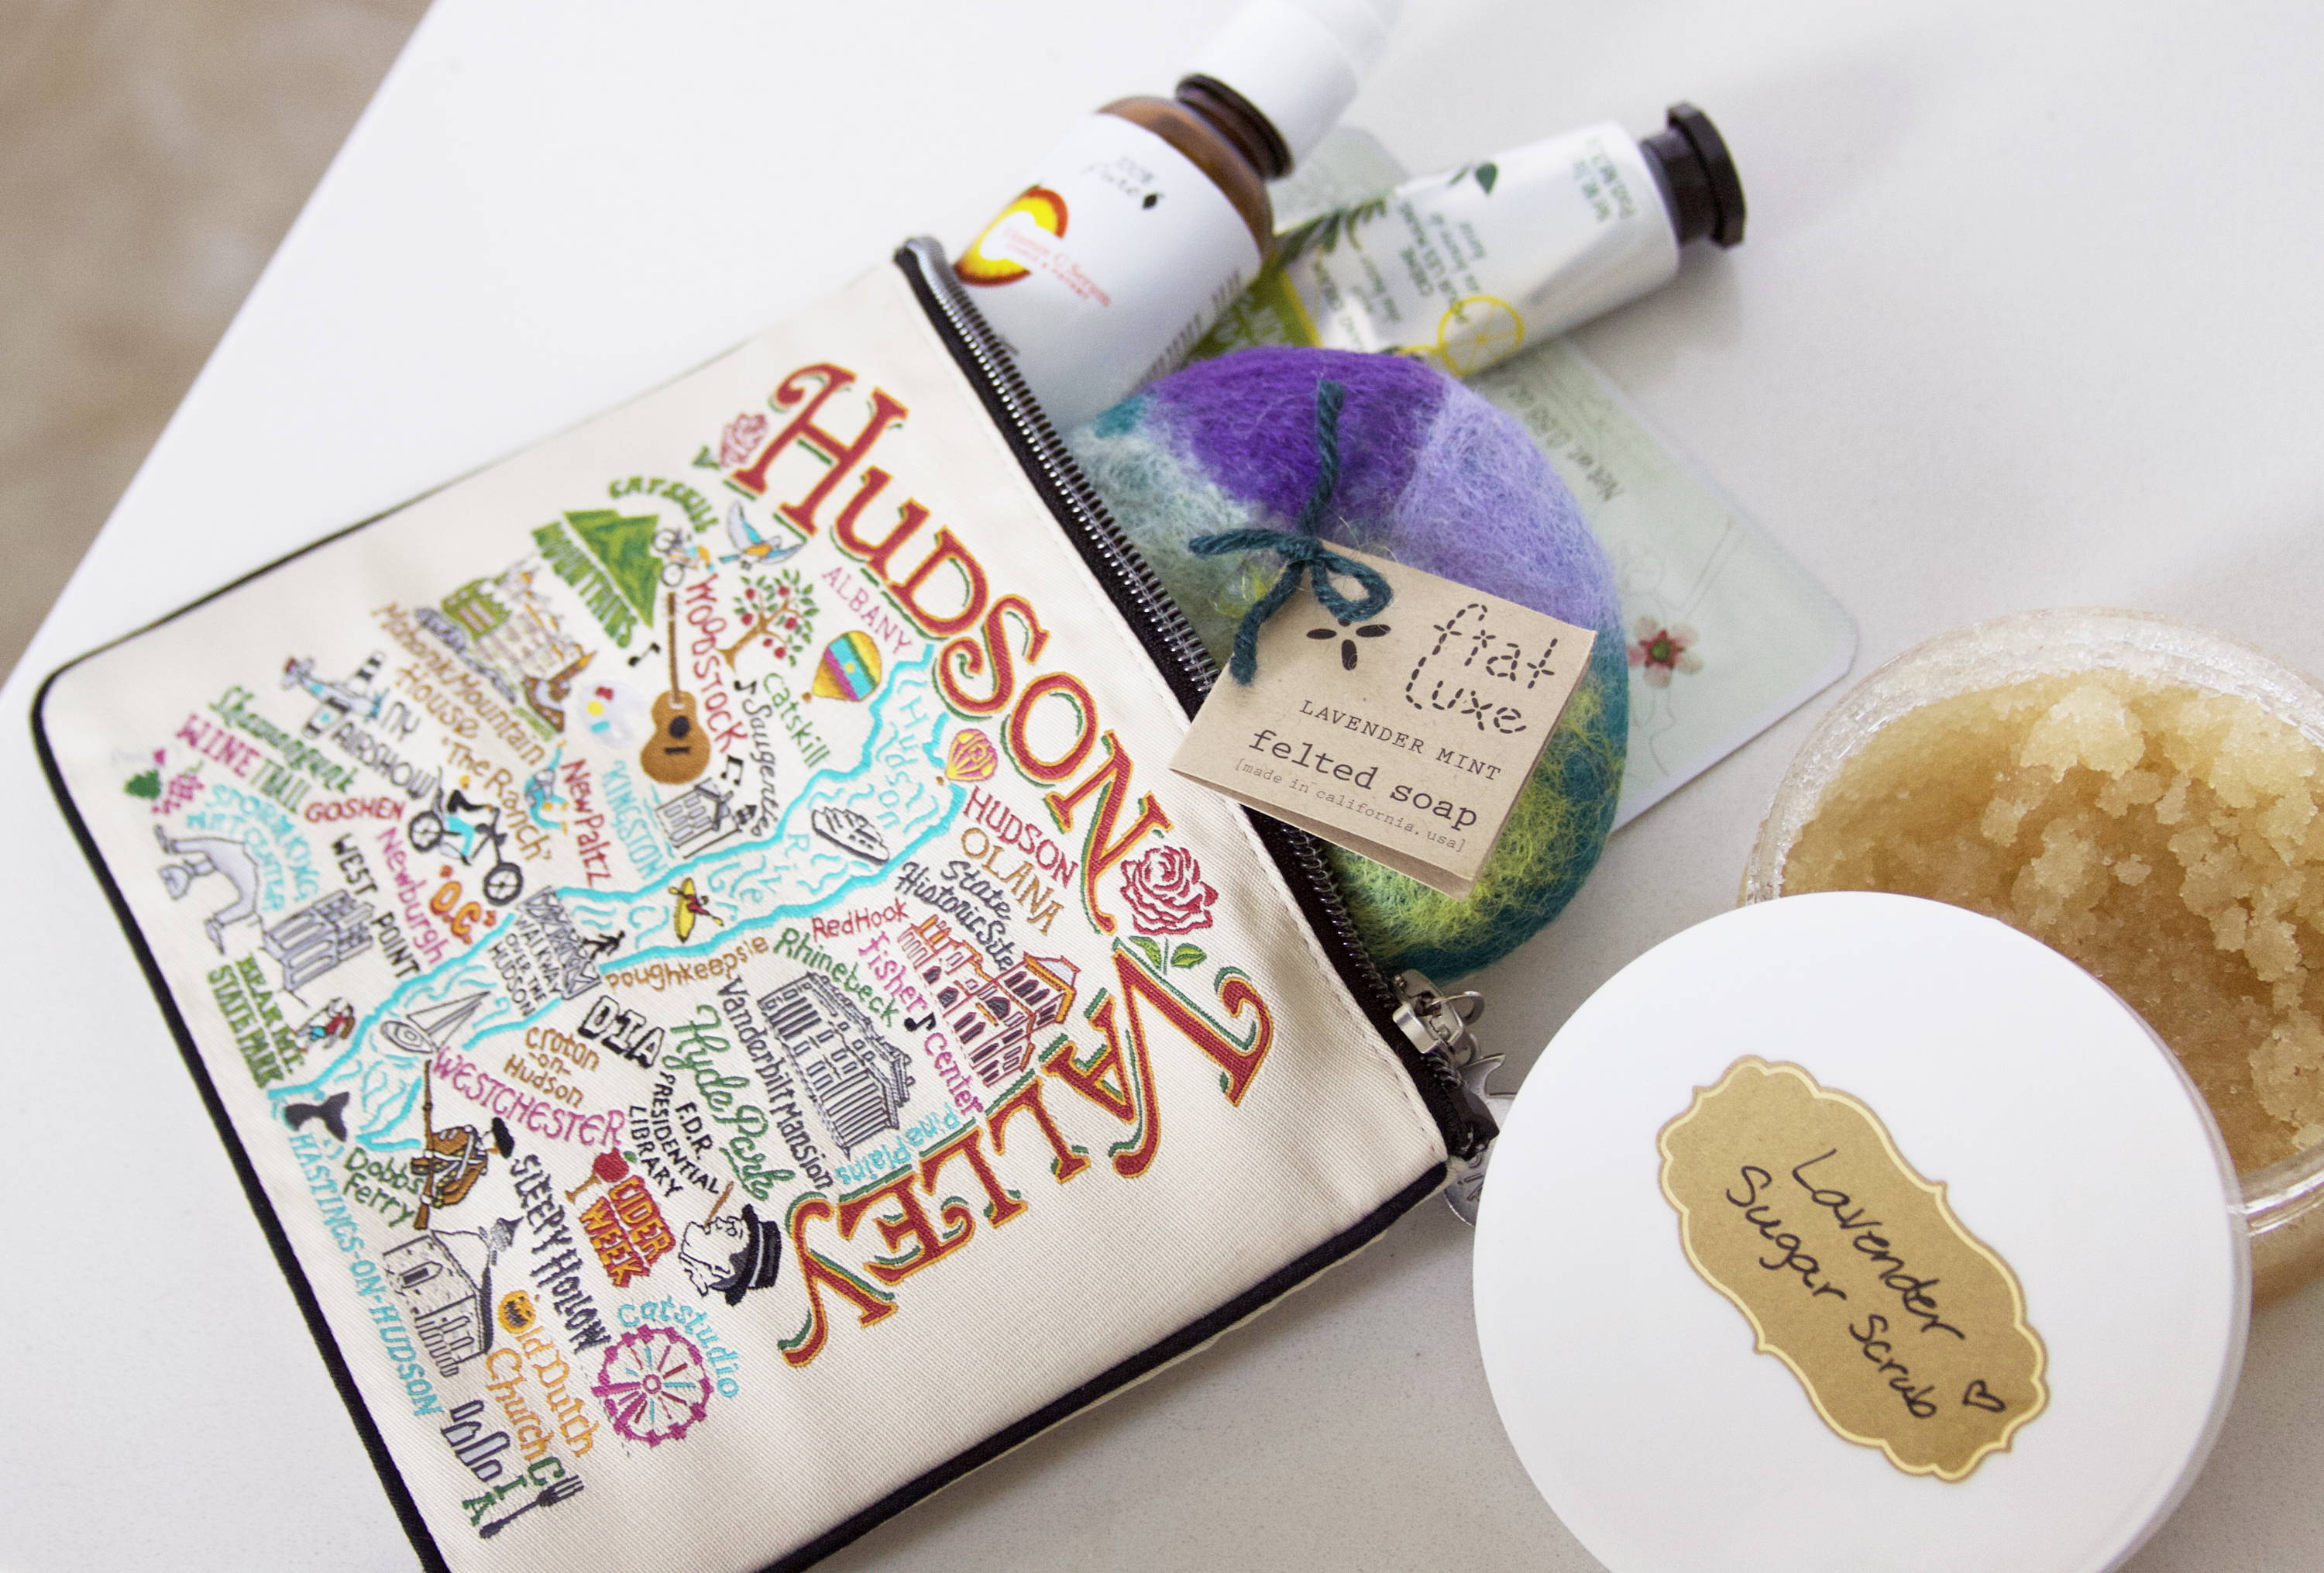 HUDSON
VALLEY
CATSKILL
MOUNTAINS
ALBANY
WOODSTOCK
Catskill
Saugerties
Mohonk Mountain
House
"The Ranch"
NY
AIRSHOW
Shawangunk
WINE TRAIL
GOSHEN
New Paltz
KINGSTON
STORM KING
ART CENTER
WEST
POINT
Newburgh
"O.C."
BEAR MT.
STATE PARK
Hudson
River
HUDSON
OLANA
State
Historic Site
WALKWAY
OVER THE
HUDSON
Poughkeepsie
Red Hook
Rhinebeck
Fisher
Center
DIA
Croton
-on-
Hudson
WESTCHESTER
Hyde Park
Vanderbilt Mansion
Pine Plains
F.D.R.
PRESIDENTIAL
LIBRARY
HASTINGS-ON-HUDSON
Dobbs
Ferry
SLEEPY HOLLOW
CIDER
WEEK
Old Dutch
Church
catstudio
CIA
100%
Pure
Vitamin C Serum
CRÈME
POUR LES MAINS
frat
luxe
LAVENDER MINT
felted soap
[made in california, usa]
Lavender
Sugar Scrub